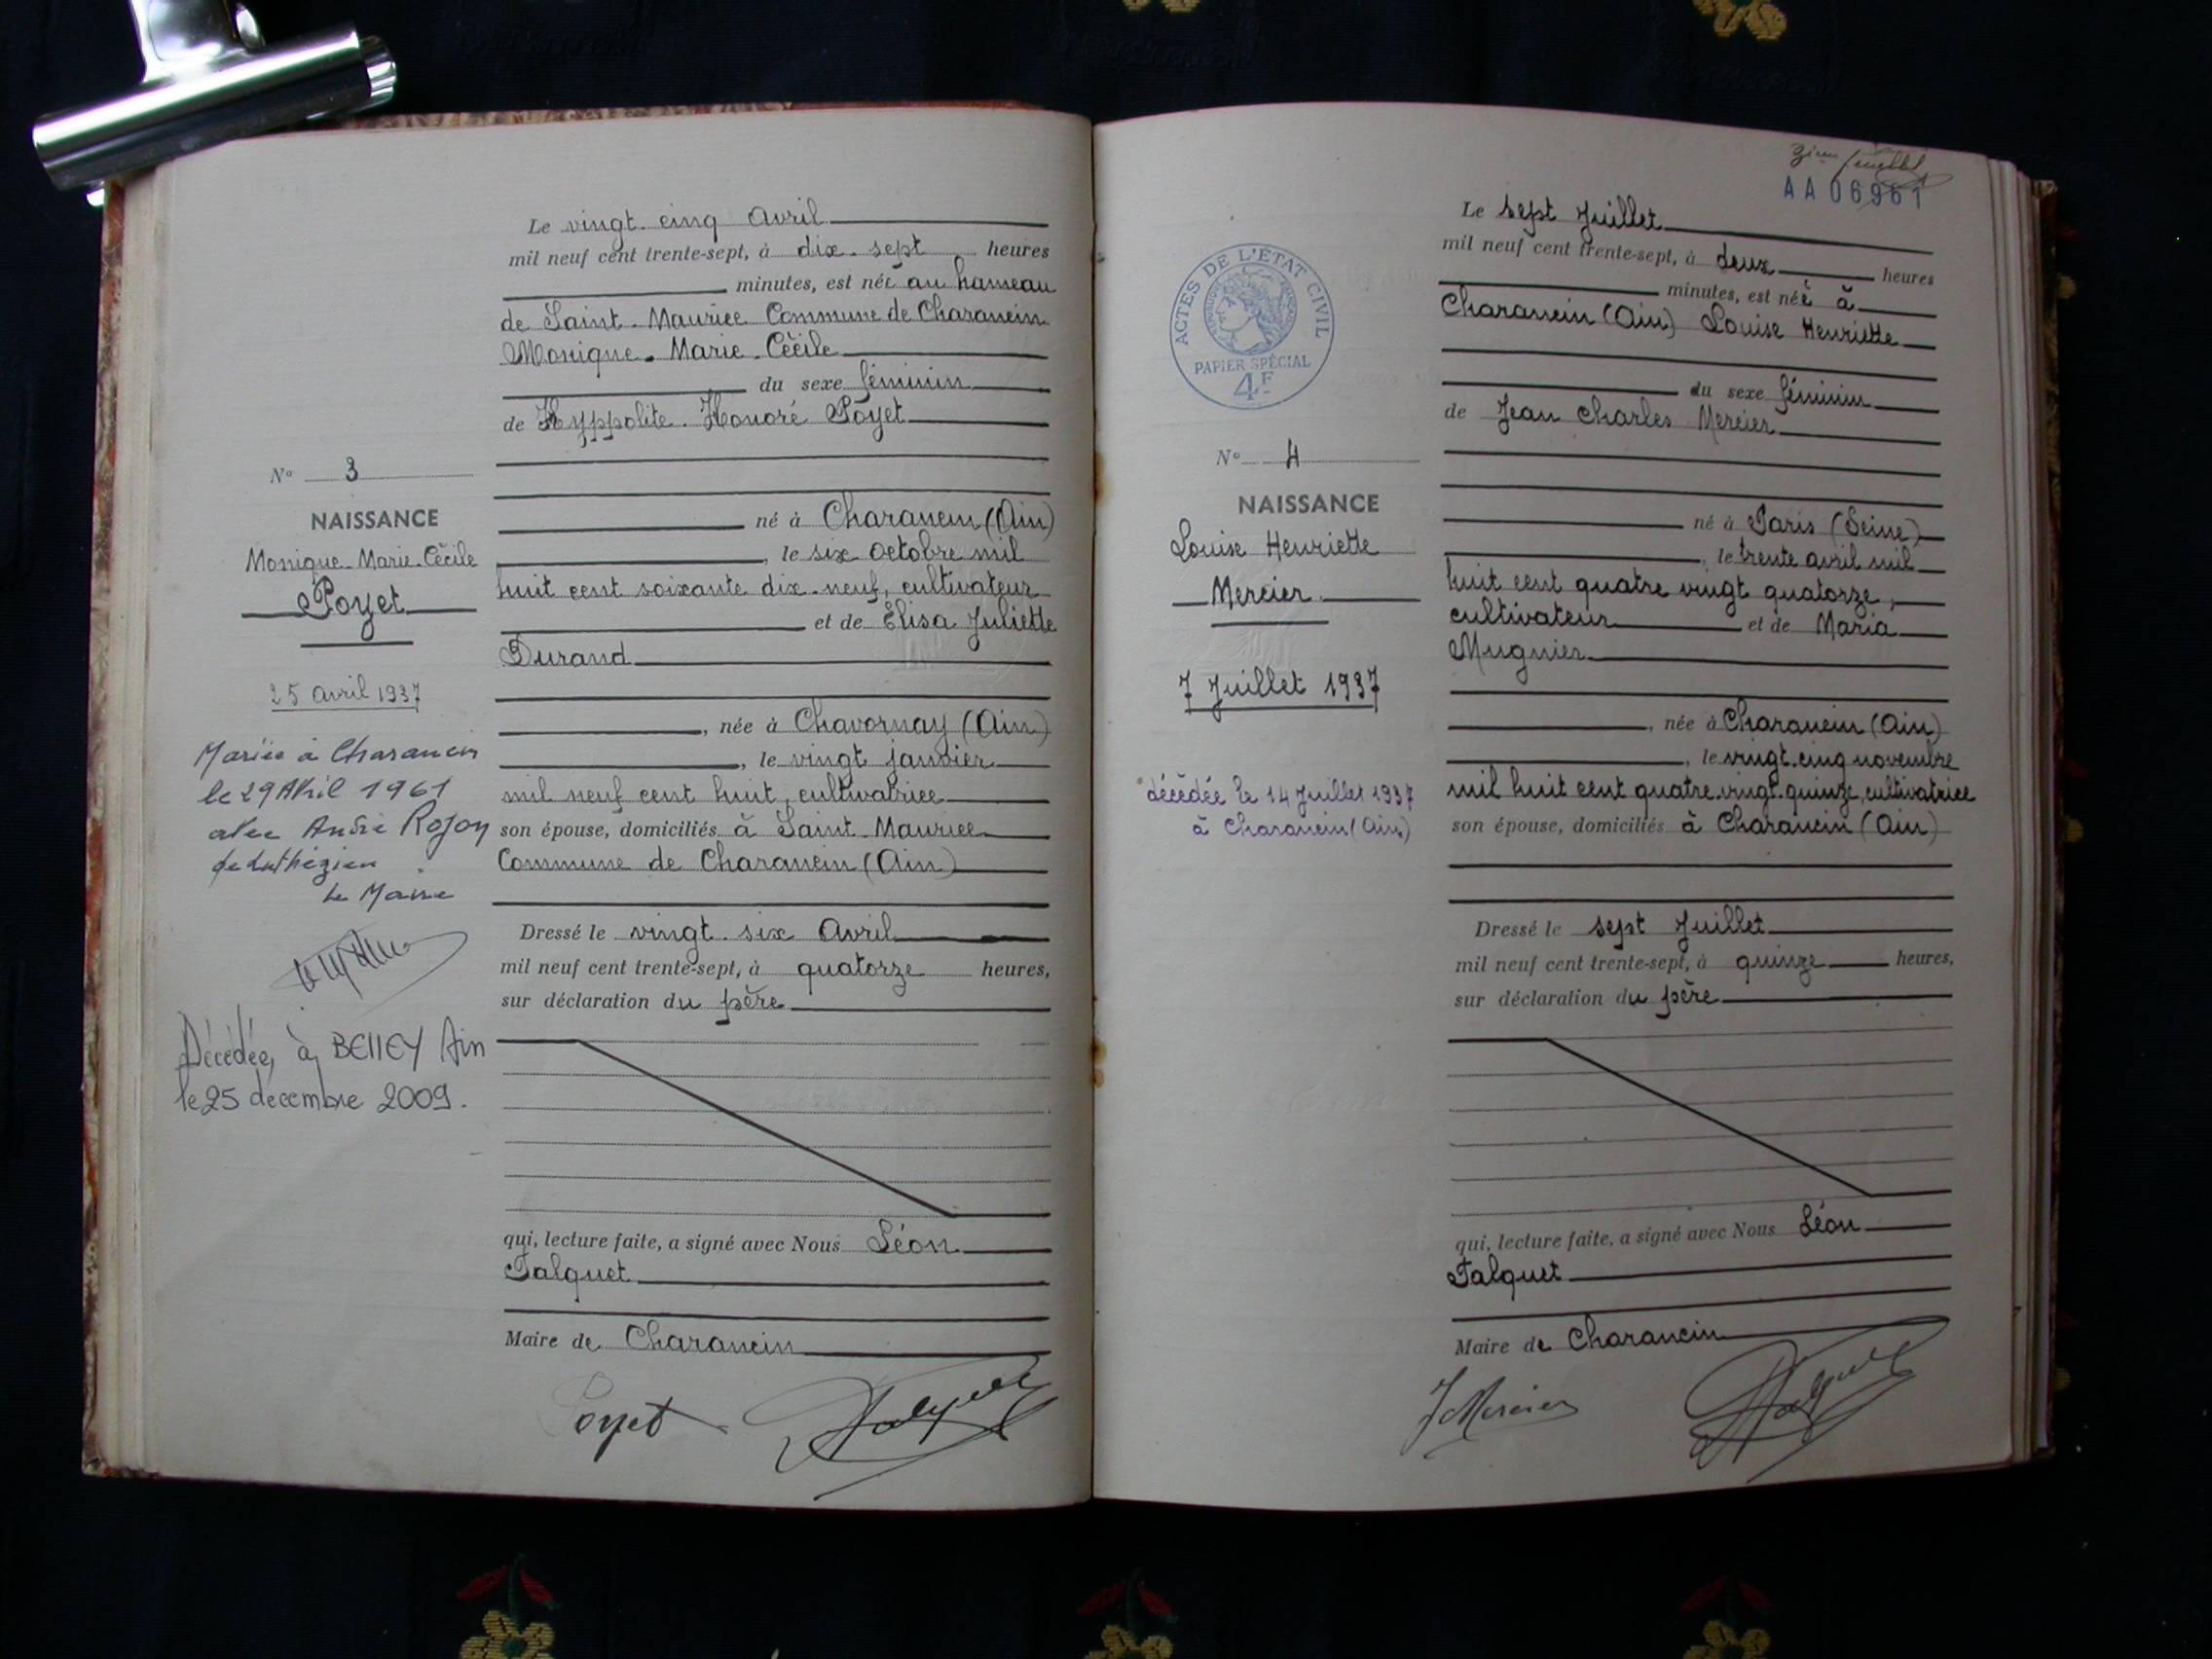 Le vingt-cinq Avril
mil neuf cent trente-sept, à dix-sept heures
minutes, est née au hameau
de Saint-Maurice Commune de Charancin
Monique-Marie-Cécile
du sexe féminin
de Hyppolite-Honoré Poyet
né à Charancin (Ain)
, le six Octobre mil
huit cent soixante dix-neuf, cultivateur
et de Élisa Juliette
Durand
, née à Chavornay (Ain)
, le vingt janvier
mil neuf cent huit, cultivatrice
son épouse, domiciliés à Saint-Maurice
Commune de Charancin (Ain)
Dressé le vingt-six Avril
mil neuf cent trente-sept, à quatorze heures,
sur déclaration du père
qui, lecture faite, a signé avec Nous Léon
Falquet
Maire de Charancin
Poyet Falquet
N° 3
NAISSANCE
Monique-Marie-Cécile
Poyet
25 avril 1937
Mariée à Charancin
le 29 Avril 1961
avec André Rojon
de Luthézieu
Le Maire
Décédée, à BELLEY Ain
le 25 décembre 2009.
AA 06961
Le sept Juillet
mil neuf cent trente-sept, à deux heures
minutes, est née à
Charancin (Ain) Louise Henriette
du sexe féminin
de Jean Charles Mercier
né à Paris (Seine)
, le trente avril mil
huit cent quatre vingt quatorze,
cultivateur et de Maria
Mugnier
, née à Charancin (Ain)
, le vingt-cinq novembre
mil huit cent quatre-vingt-quinze, cultivatrice
son épouse, domiciliés à Charancin (Ain)
Dressé le sept Juillet
mil neuf cent trente-sept, à quinze heures,
sur déclaration du père
qui, lecture faite, a signé avec Nous Léon
Falquet
Maire de Charancin
J Mercier Falquet
ACTES DE L'ÉTAT CIVIL
PAPIER SPÉCIAL
4F
N° 4
NAISSANCE
Louise Henriette
Mercier
7 Juillet 1937
décédée le 14 Juillet 1937
à Charancin (Ain)